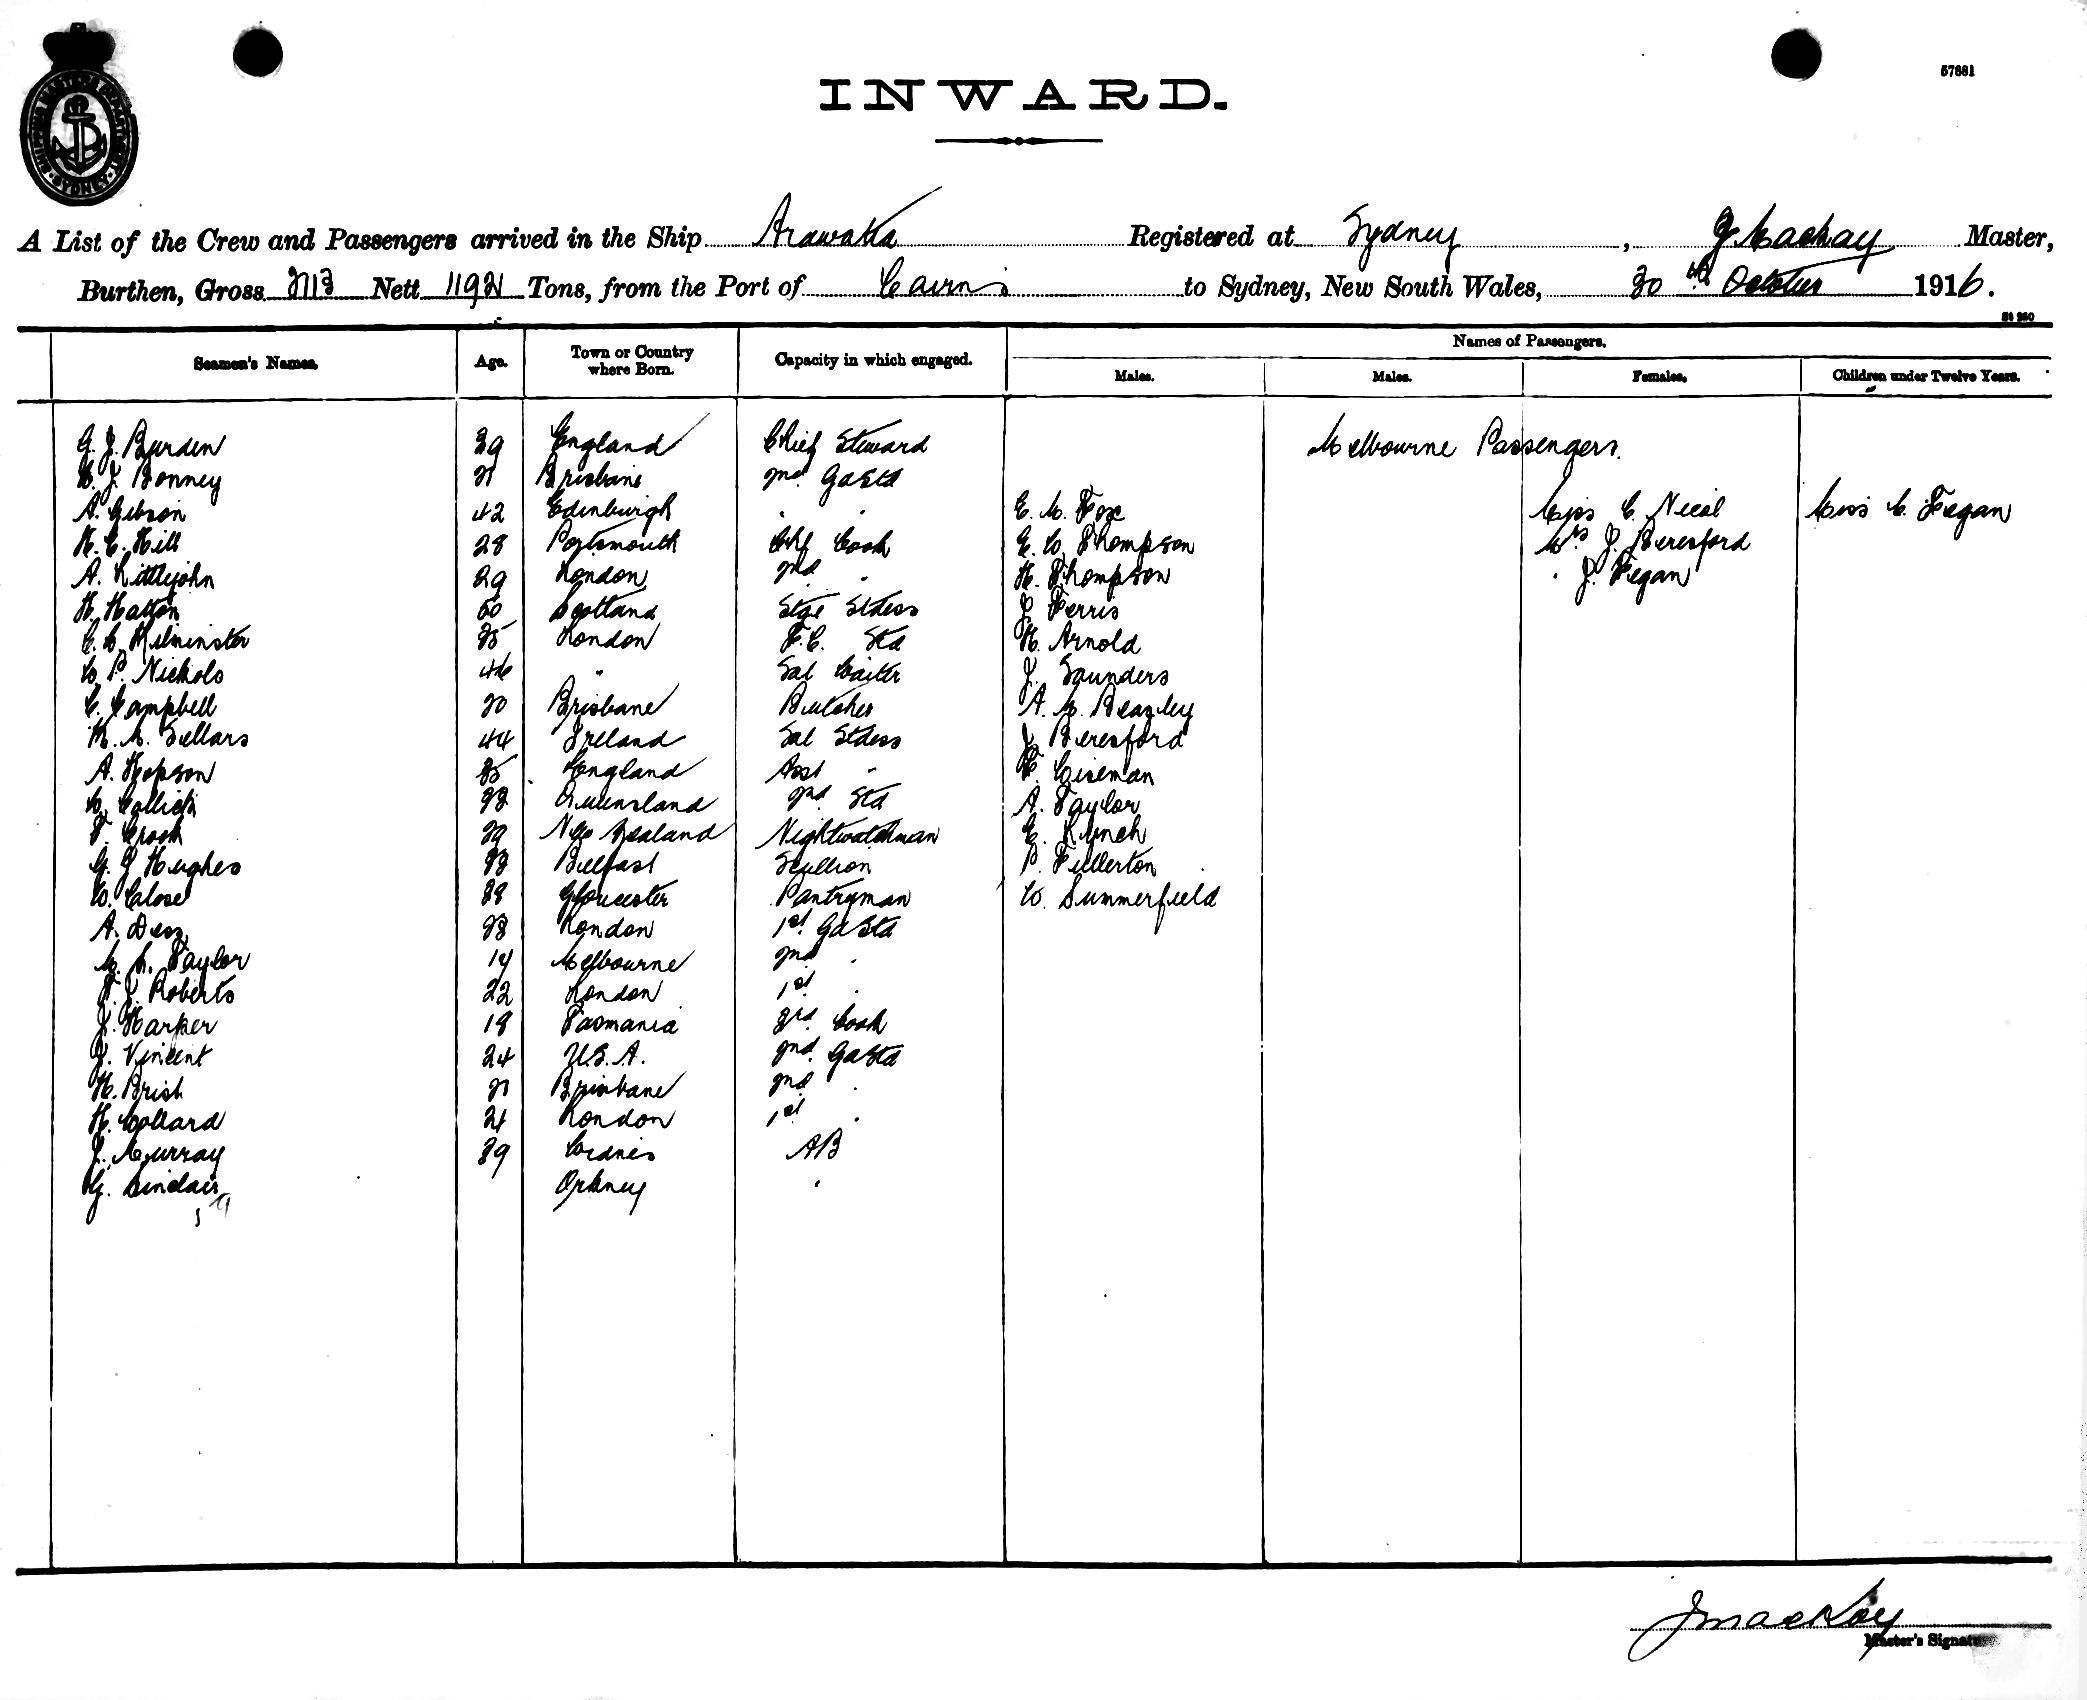 SHIPPING MASTERS DEPARTMENT SYDNEY
57681
INWARD.
A List of the Crew and Passengers arrived in the Ship Arawatta Registered at Sydney, J Mackay Master,
Burthen, Gross 2113 Nett 1192 Tons, from the Port of Cairns to Sydney, New South Wales, 30th October 1916.
St 280
Seamen's Names. Age. Town or Country where Born. Capacity in which engaged. Names of Passengers.
Males. Males. Females. Children under Twelve Years.
G. J. Burden 39 England Chief Steward Melbourne Passengers.
C. J. Bonney 21 Brisbane 2nd GaStd
A. Gibson 42 Edinburgh " " E. M. Fox Miss C. Nicol Miss C. Fegan
H. C. Hill 28 Portsmouth Chf Cook E. W. Thompson Mrs J. Beresford
A. Littlejohn 29 London 2nd " H. Thompson " J. Fegan
H. Hatton 50 Scotland Stge Stdess J. Ferris
C. C. Kilminster 35 London F.C. Std H. Arnold
W. P. Nichols 46 " Sal Waiter J. Saunders
C. Campbell 20 Brisbane Butcher A. M. Beazley
K. M. Sellars 44 Ireland Sal Stdess J. Beresford
A. Hopson 35 England Asst " F. Wiseman
W. Collick 33 Queensland 2nd Std A. Taylor
F. Crook 39 New Zealand Nightwatchman E. Lynch
G. J Hughes 33 Belfast Scullion P. Fullerton
W. Close 38 Gloucester Pantryman W. Summerfield
A. 33 London 1st GaStd
M. L. Taylor 17 Melbourne 2nd "
F. J. Roberts 22 London 1st "
J. Harper 18 Tasmania 3rd Cook
J. Vincent 24 U.S.A. 2nd GaStd
H. Brist 21 Brisbane 2nd "
H. Collard 21 London 1st "
J. Murray 39 Widnes AB
G. Sinclair Orkney "
J Mackay
Master's Signature